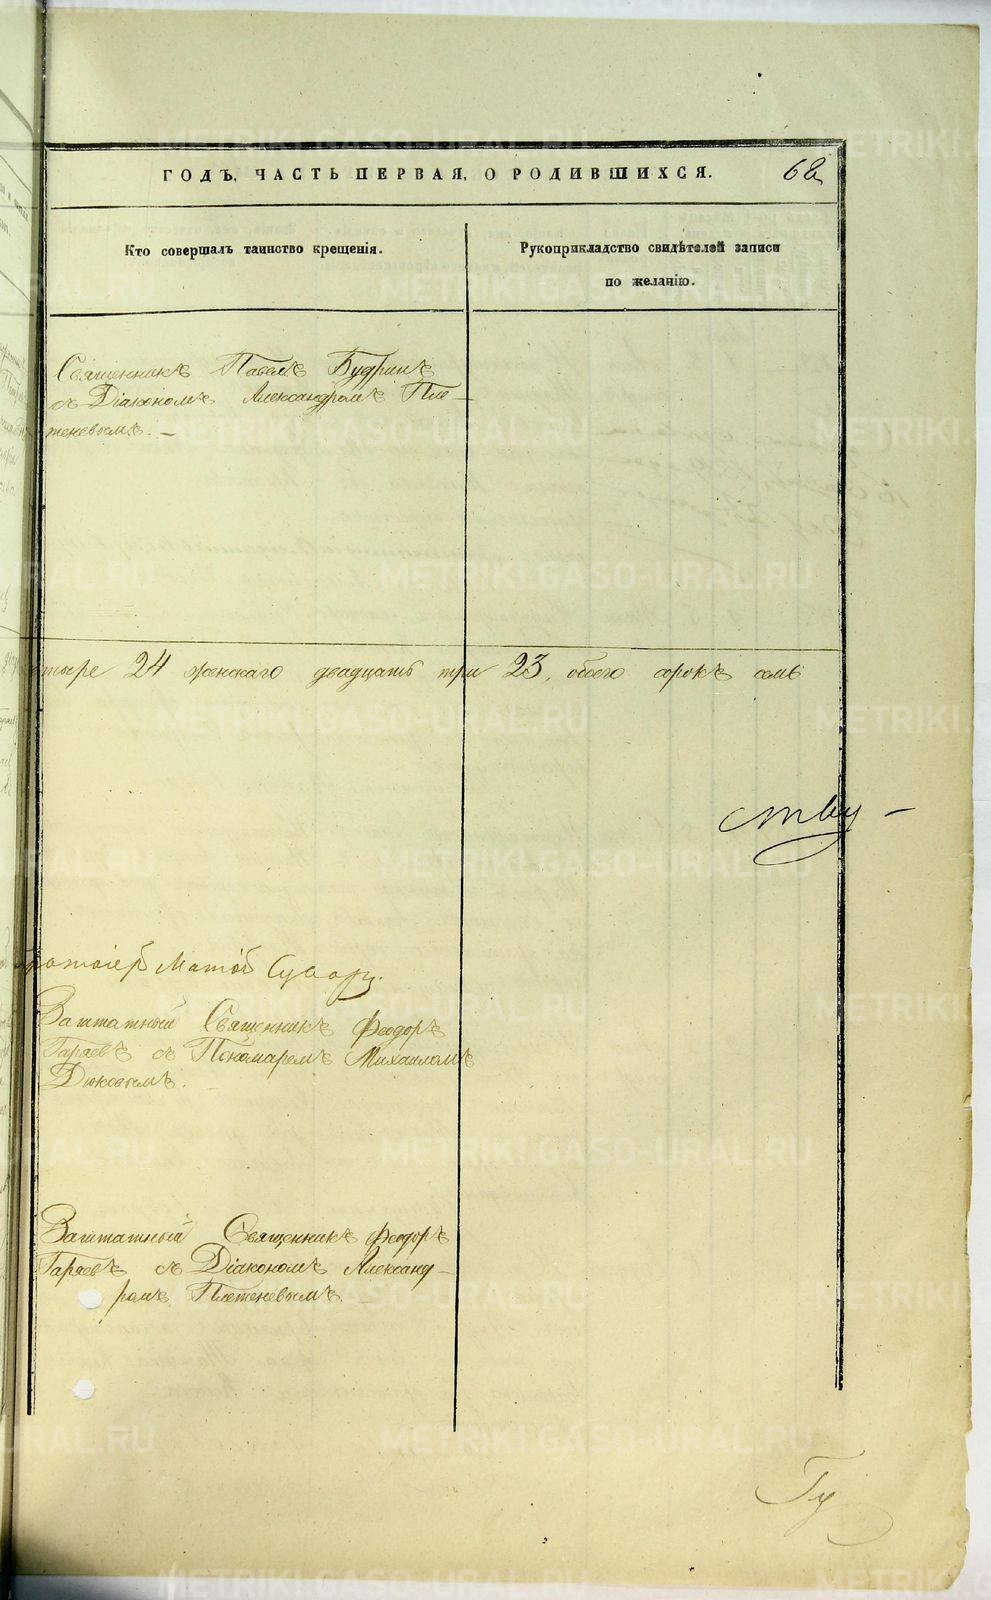 ГОДЪ, ЧАСТЬ ПЕРВАЯ, О РОДИВШИХСЯ.
Кто совершалъ таинство крещенія.
Рукоприкладство свидѣтелей записи
по желанію.
Священникъ Павелъ Будринъ
съ Діакономъ Александромъ Пле-
теневымъ. –
тыре 24 женскаго двадцать три 23, обоего сорокъ семь
ству –
Матѳ
Заштатный Священникъ Феодоръ
Гаряевъ съ Пономаремъ Михаиломъ
Дюковымъ. –
Заштатный Священникъ Феодоръ
Гаряевъ съ Діакономъ Александ-
ромъ Плетеневымъ. –
Гу
METRIKI.GASO-URAL.RU